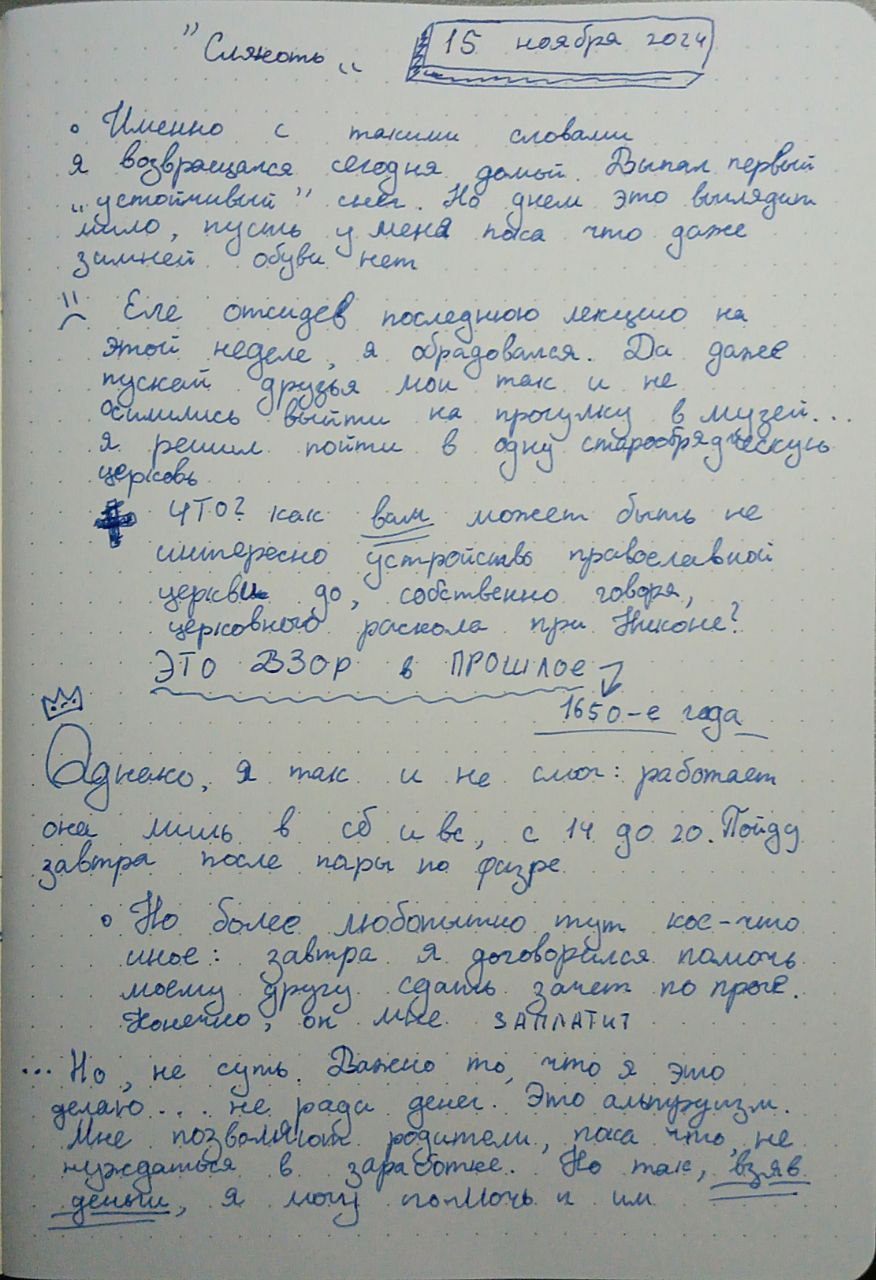 "Слякоть„
15 ноября 2024
• Именно с такими словами
я возвращался сегодня домой. Выпал первый
„устойчивый" снег. Но днем это выглядит
мило, пусть у меня пока что даже
зимней обуви нет
Еле отсидев последнюю лекцию на
этой неделе, я обрадовался. Да даже
пускай друзья мои так и не
осилились выйти на прогулку в музей...
я решил пойти в одну старообрядческую
церковь
ЧТО? как вам может быть не
интересно устройство православной
церкви до, собственно говоря,
церковного раскола при Никоне?
ЭТО ВЗОР в ПРОШЛОЕ
1650-е года
Однако, я так и не смог: работает
она лишь в сб и вс, с 14 до 20. Пойду
завтра после пары по физре
• Но более любопытно тут кое-что
иное: завтра я договорился помочь
моему другу сдать зачет по проге.
Конечно, он мне ЗАПЛАТИТ
... Но, не суть. Важно то, что я это
делаю... не ради денег. Это альтруизм.
Мне позволяют родители, пока что, не
нуждаться в заработке. Но так, взяв
деньги, я могу помочь и им